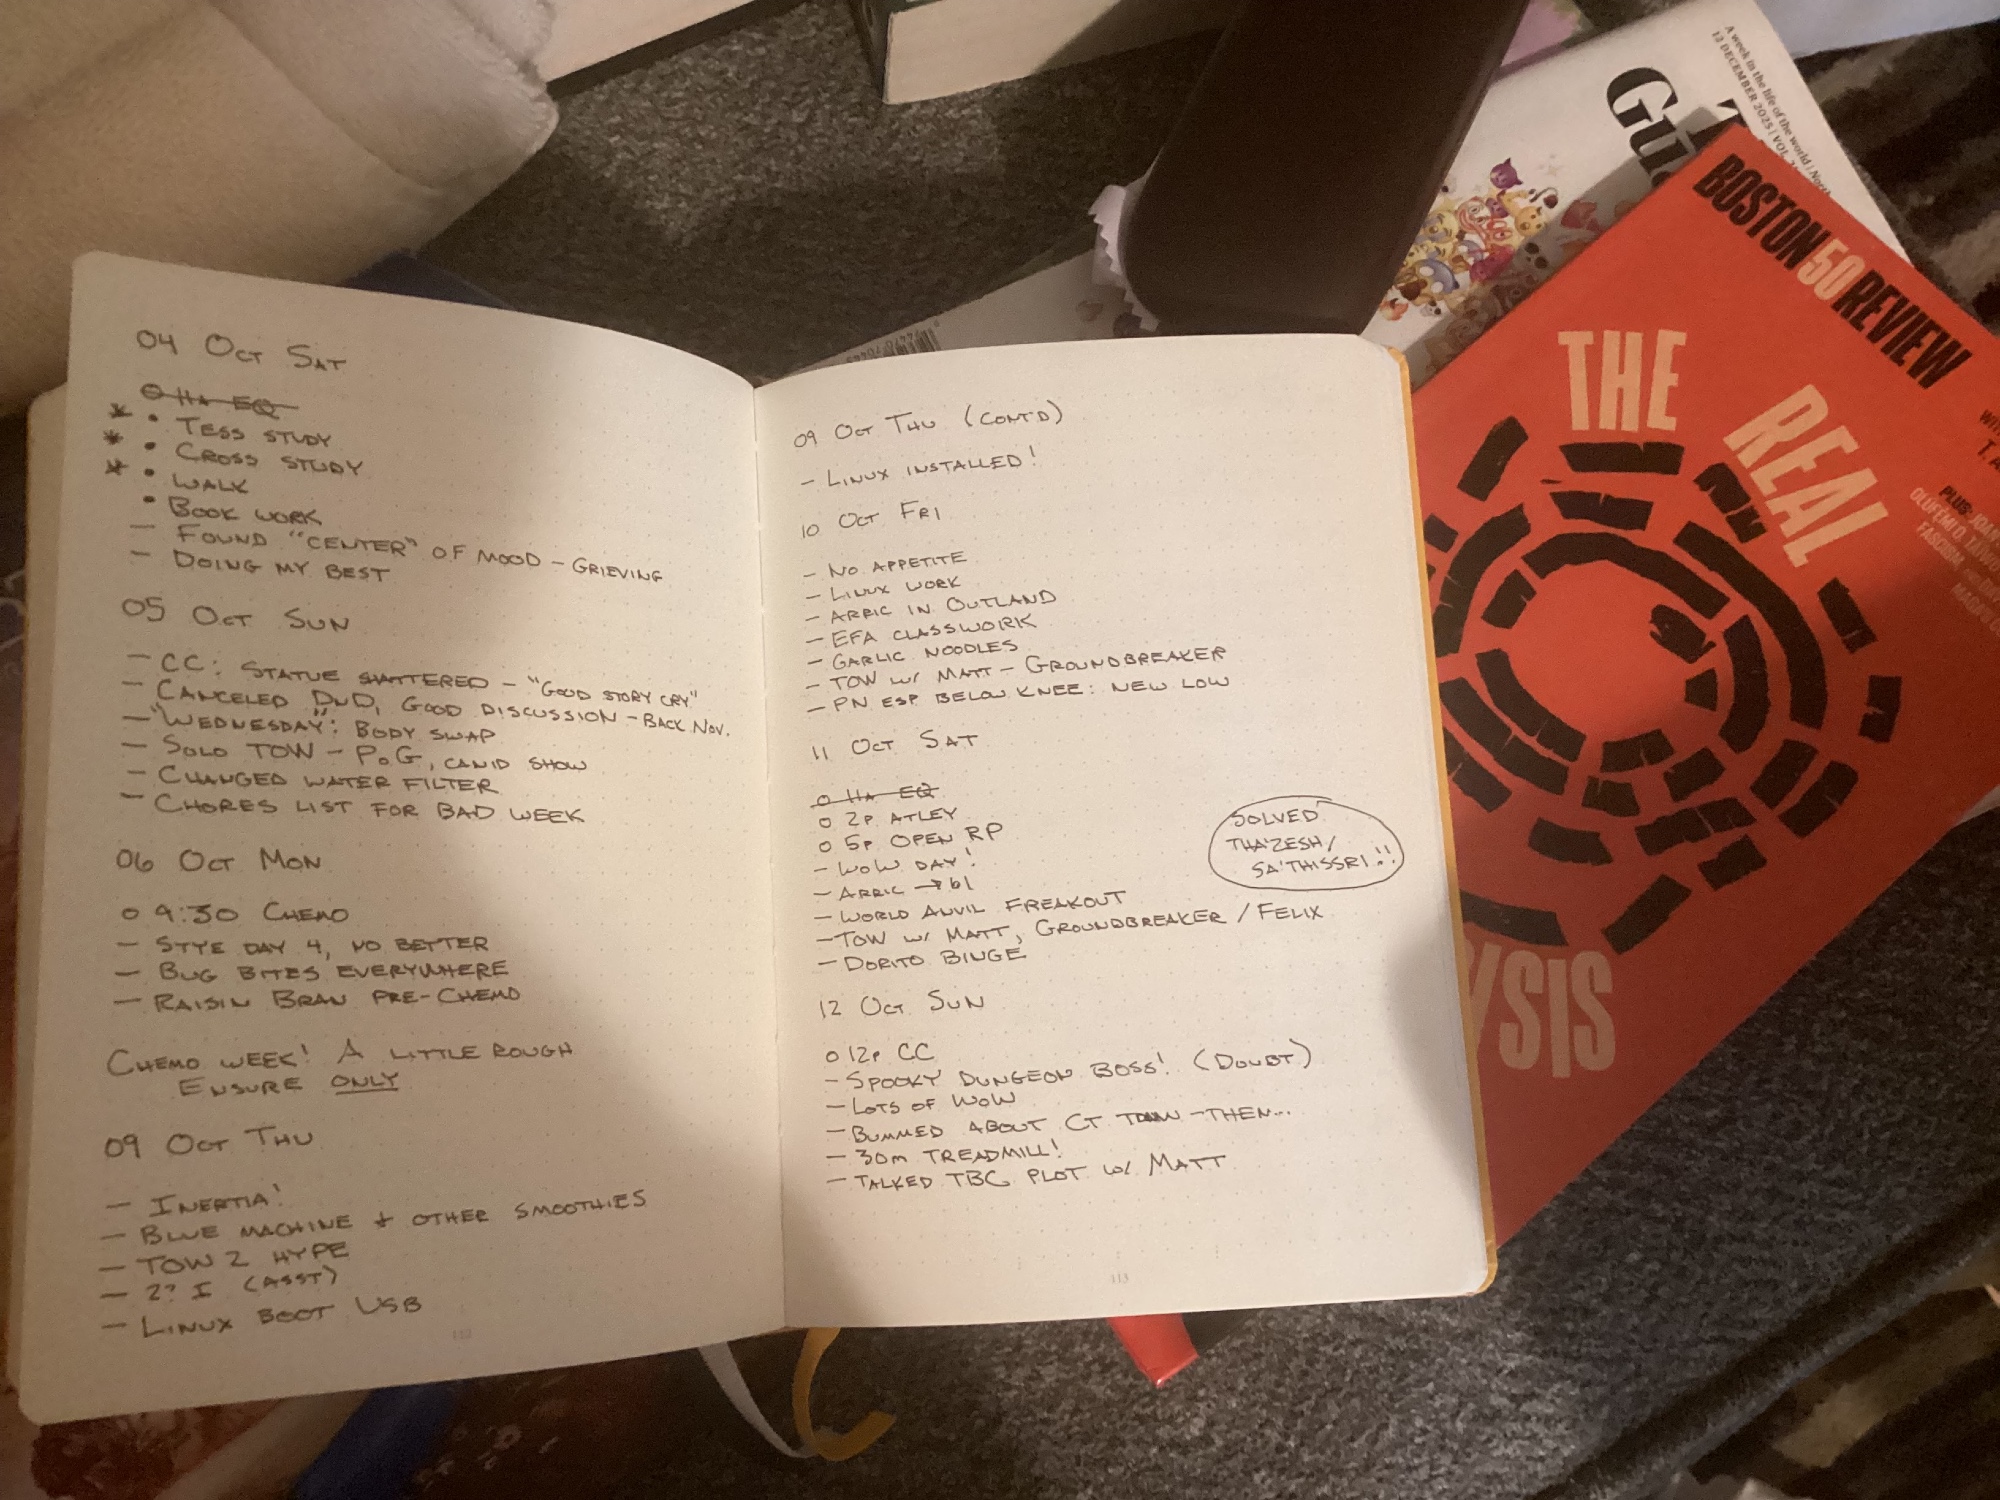 04 Oct Sat
o 11a EQ
* • Tess study
* • Cross study
* • Walk
• Book work
— Found "center" of mood – grieving
— Doing my best
05 Oct Sun
— CC: Statue shattered – "good story cry"
— Canceled DnD, good discussion – back Nov.
— "Wednesday": body swap
— Solo TOW – PoG, canid show
— Changed water filter
— Chores list for bad week
06 Oct Mon
o 9:30 Chemo
— Stye day 4, no better
— Bug bites everywhere
— Raisin Bran pre-chemo
Chemo week! A little rough
Ensure only
09 Oct Thu
— Inertia!
— Blue machine + other smoothies
— TOW 2 hype
— 2? I (Asst)
— Linux boot USB
112
09 Oct Thu (cont'd)
— Linux installed!
10 Oct Fri
— No appetite
— Linux work
— Arric in Outland
— EFA classwork
— Garlic noodles
— TOW w/ Matt – Groundbreaker
— PN esp below knee: new low
11 Oct Sat
o 11a EQ
o 2p Atley
o 5p Open RP
— WoW day!
— Arric → 61
— World Anvil freakout
— TOW w/ Matt, Groundbreaker / Felix
— Dorito binge
Solved
Tha'zesh/
Sa'thissri!!
12 Oct Sun
o 12p CC
— Spooky dungeon boss! (Doubt)
— Lots of WoW
— Bummed about CT town – then...
— 30m treadmill!
— Talked TBC plot w/ Matt
113
A week in the life of the world |
12 DECEMBER 2025 | VOL
BOSTON 50 REVIEW
THE REAL
PLUS: